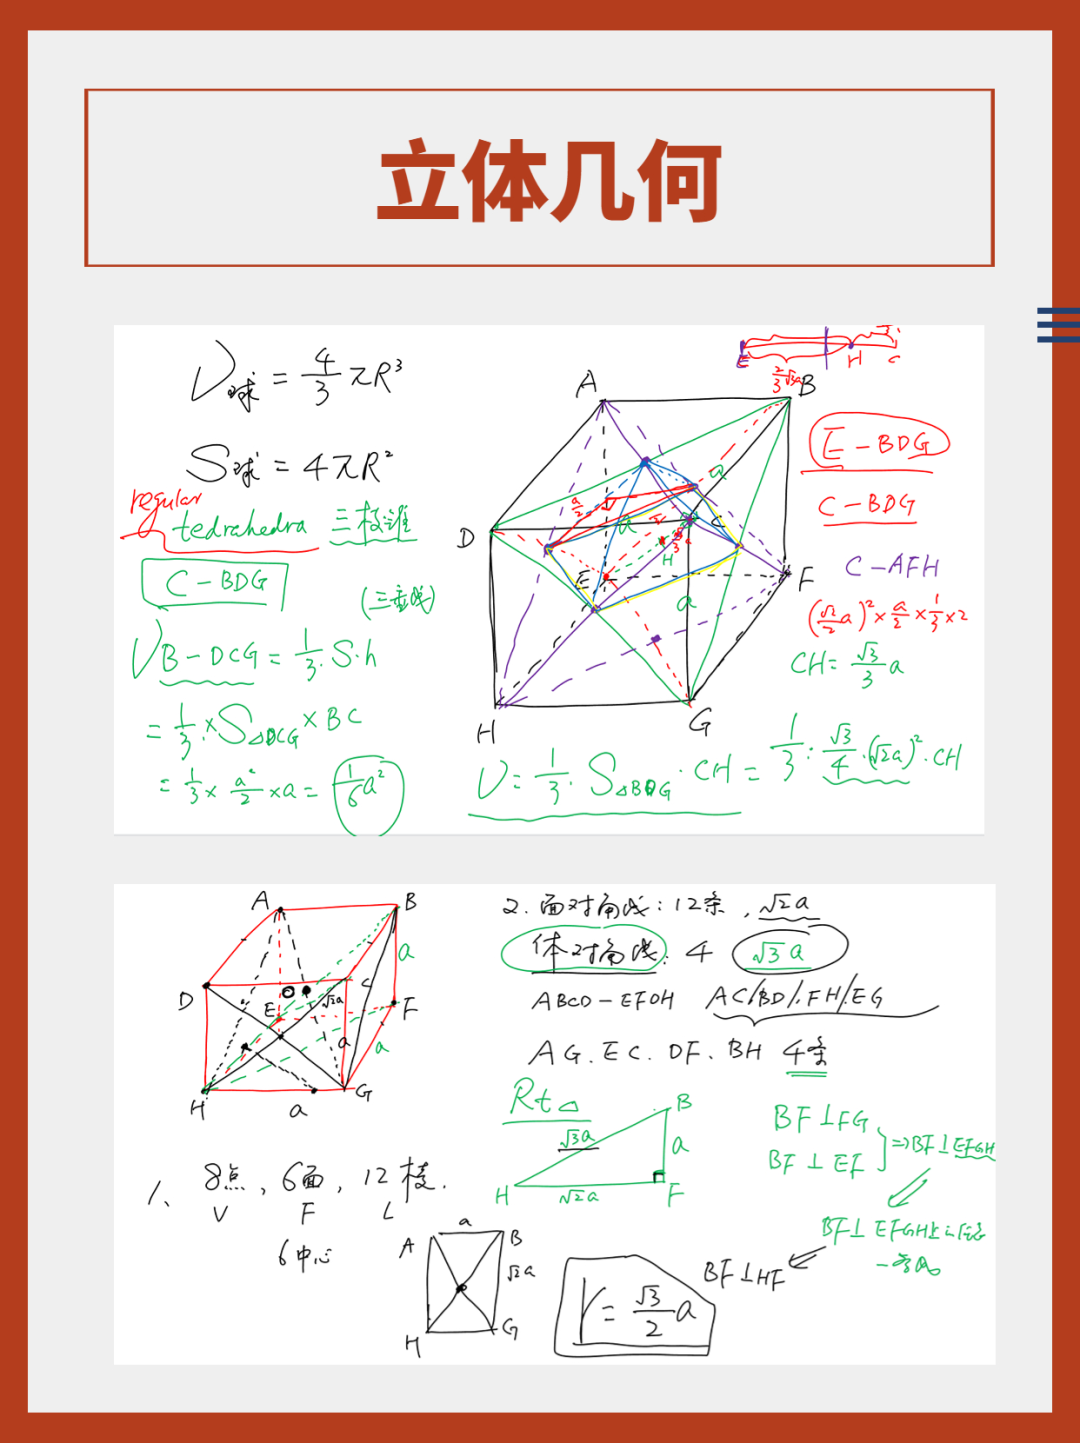 立体几何
V球 = 4/3 πR³
S球 = 4πR²
regular
tedrahedra 三棱谁
C-BDG
(三垂线)
V B-DCG = 1/3 · S·h
= 1/3 × S△DCG × BC
= 1/3 × a²/2 × a = 1/6 a²
E H C
2/3 √3a
A B
D C
E F
H G
a/2 a a a H
E-BDG
C-BDG
C-AFH
(√2/2 a)² × a/2 × 1/3 × 2
CH = √3/3 a
V = 1/3 · S△BDG · CH = 1/3 · √3/4 · (√2a)² · CH
A B
D C
E F
H G
√2a a a a a
2. 面对角线: 12条, √2a
体对角线: 4 √3a
ABCD-EFOH AC/BD/FH/EG
AG. EC. DF. BH 4条
Rt△
B
√3a a
H √2a F
BF⊥FG
BF⊥EF
⇒BF⊥EFGH
BF⊥EFGH
BF⊥HF
1、 8点, 6面, 12棱.
V F L
6中心
a
A B
√2a
H G
r = √3/2 a